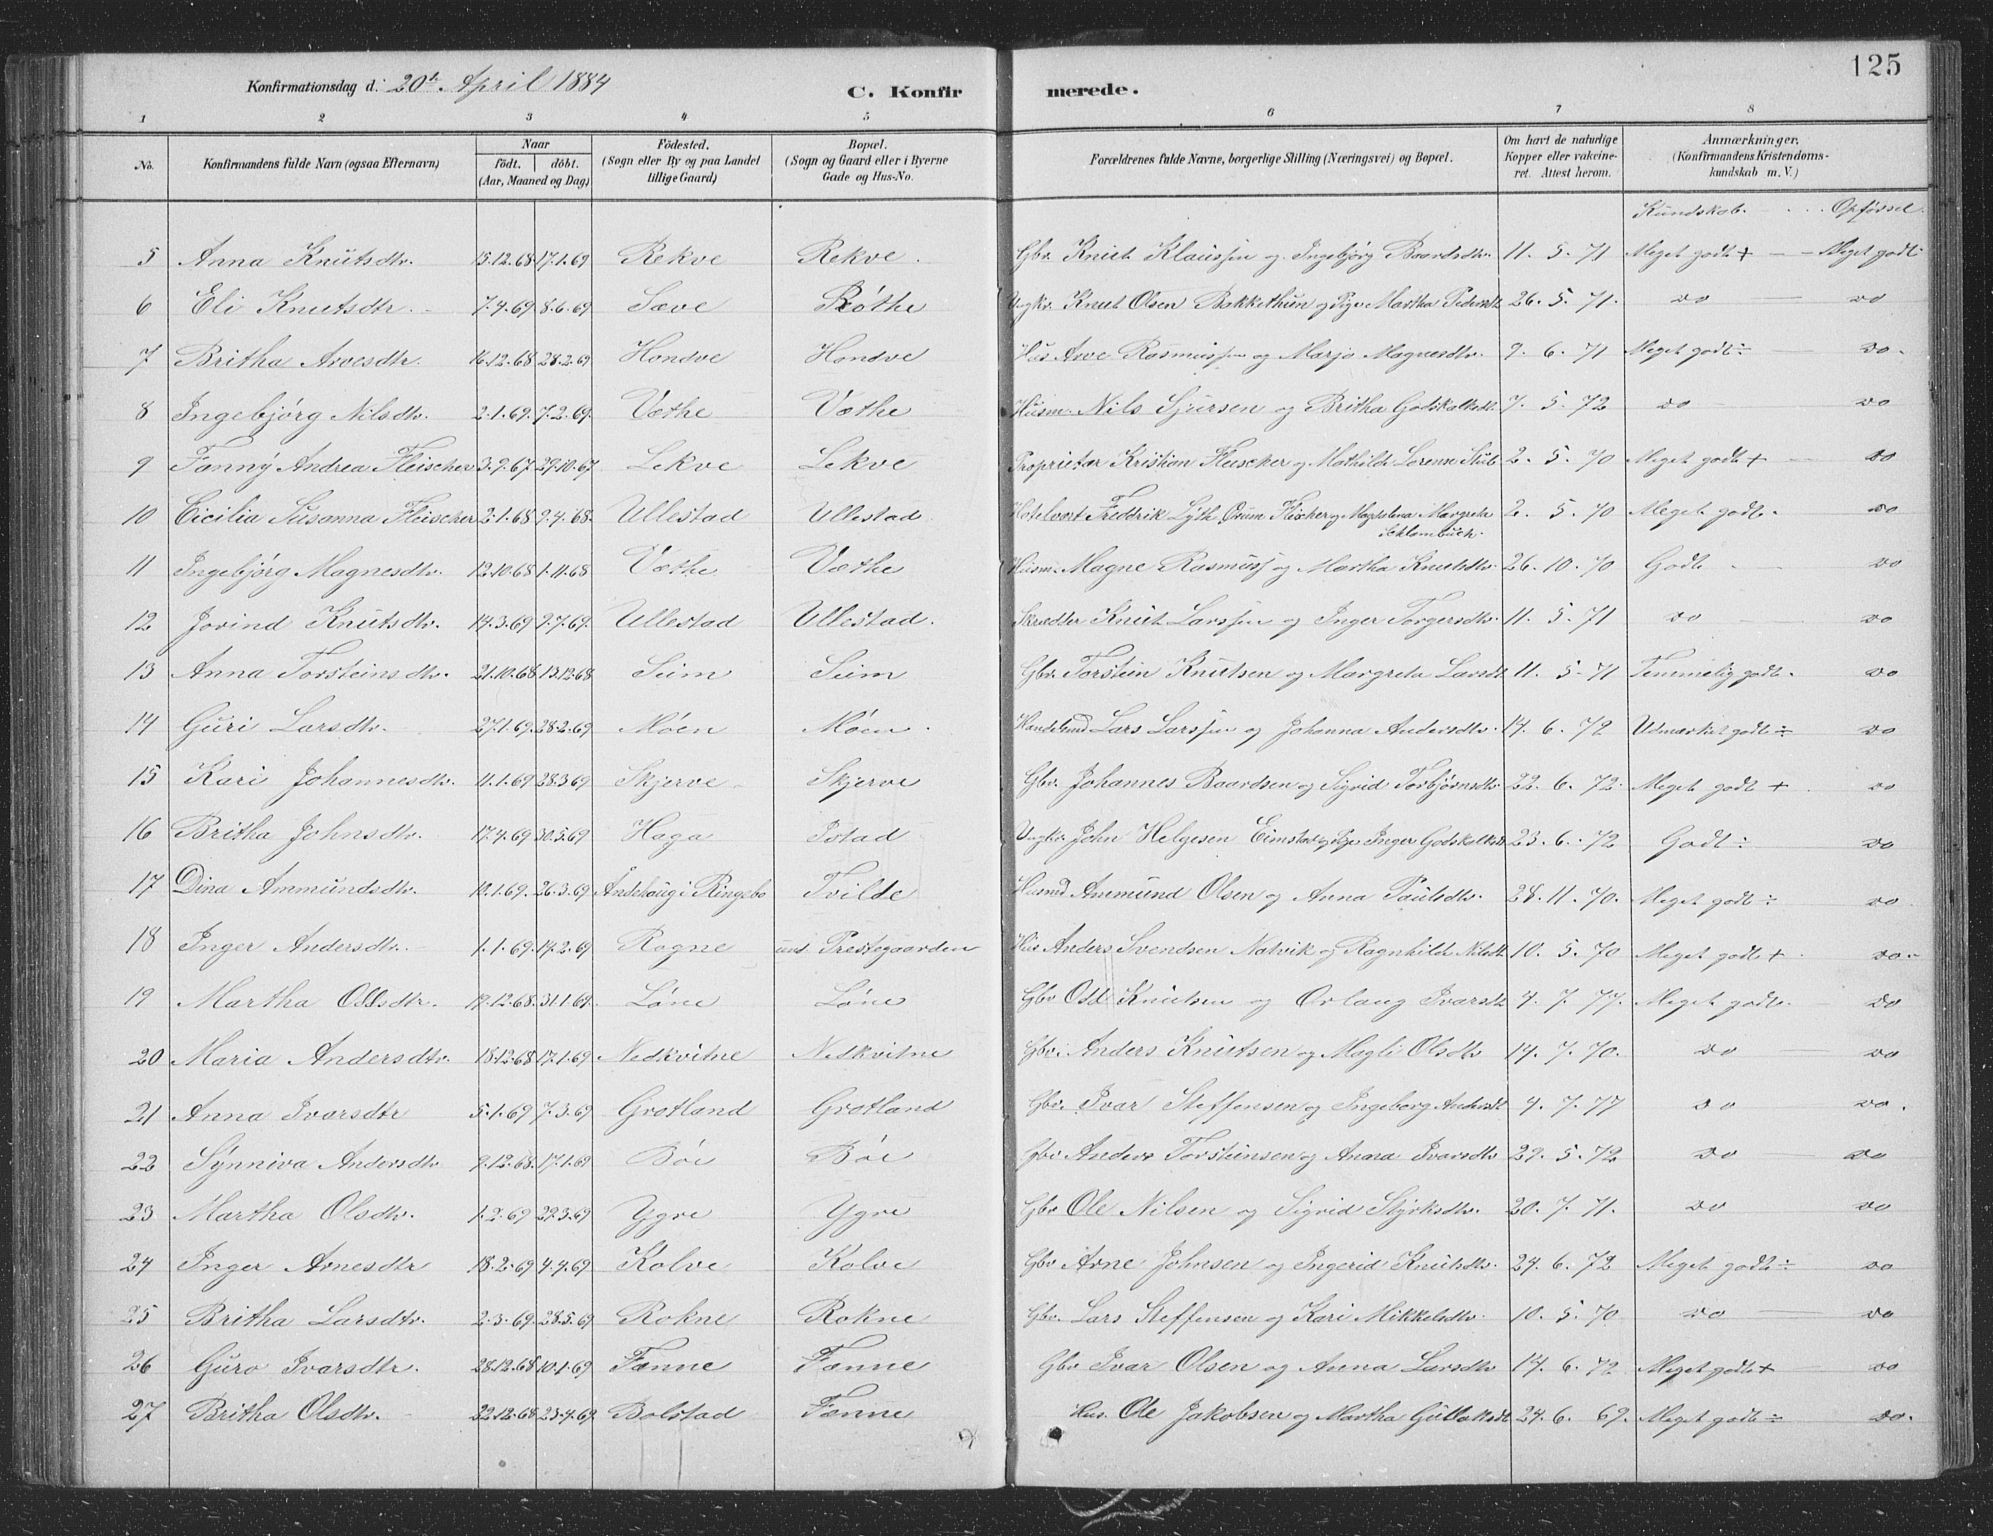 125
Konfirmationsdag d. 20de April 1884 C. Konfirmerede.
1 2 3 4 5 6 7 8
No. Konfirmandens fulde Navn (ogsaa Efternavn) Naar födt. döbt. (Aar, Maaned og Dag) Födested. (Sogn eller By og paa Landet tillige Gaard) Bopæl. (Sogn og Gaard eller i Byerne Gade og Hus-No. Forældrenes fulde Navne, borgerlige Stilling (Næringsvei) og Bopæl. Om havt de naturlige Kopper eller vakcineret. Attest herom. Anmærkninger. (Konfirmandens Kristendomskundskab m. V.)
Kundskab. Opførsel.
5 Anna Knutsdtr. 15.12.68 17.1.69 Rekve Rekve. Gbr. Knut Klaussen og Ingebjørg Baardsdtr. 11. 5. 71 Meget godt + Meget godt
6 Eli Knutsdtr. 7.4.69 8.6.69 Sæve Røthe Ungkr. Knut Olsen Bakkethun og Pige Martha Pedersdt 26. 5. 71. do do
7 Britha Arnesdtr. 16.12.68 28.2.69 Hondve Hondve Hus Arne Rasmussen og Marjo Magnesdtr. 9. 6. 71 Meget godt ÷ do.
8 Ingebjørg Nilsdtr. 2.1.69. 7.2.69. Væthe Væthe Husm. Nils Sjursen og Britha Godskalksdt. 7. 5. 72 do do
9 Fanny Andrea Fleischer 3.9.67 29.10.67 Lekve Lekve Proprietær Kristian Fleischer og Mathilde Lorense Stub 2. 5. 70 Meget godt + do
10 Cicilia Susanna Fleischer 2.1.68 9.4.68. Ullestad Ullestad Hotelvært Fredrik Lyth Ørum Fleischer og Magdalena Margreta Schlambuch. 2. 5. 70 Meget godt. do
11 Ingebjørg Magnesdtr. 12.10.68 1.11.68 Væthe Væthe Husm. Magne Rasmuss og Martha Knutsdtr. 26. 10. 70 Godt do
12 Jorind Knutsdtr. 14.3.69 2.7.69. Ullestad Ullestad. Skrædder Knut Larssen og Inger Torgersdtr. 11. 5. 71 do do
13 Anna Torsteinsdtr. 21.10.68 13.12.68 Seim Seim Gbr. Torstein Knutsen og Margreta Larsdt 11. 5. 71 Temmelig godt. do
14 Guri Larsdtr. 27.1.69 28.2.69 Møen Møen. Handelsmd Lars Larssen og Johanna Andersdtr. 14. 6. 72 Udmærket godt ÷ do
15 Kari Johannesdtr. 11.1.69 28.3.69 Skjerve Skjerve Gbr. Johannes Baardsen og Sigrid Torbjørnsdtr. 22. 6. 72. Meget godt + do
16 Britha Johnsdtr. 17.4.69 30.5.69 Haga Istad Ungkr. John Helgesen Eimstad og Pige Inger Godskalksdt 23. 6. 72 Godt ÷ do
17 Dina Ammundsdtr. 12.1.69. 26.3.69 Åndehaug i Ringebo Tvilde Husmd Ammund Olsen og Anna Paulsdtr. 28. 11. 70. Meget godt ÷ do
18 Inger Andersdtr. 1.1.69 14.2.69 Rogne und. Prestegaarden Hus Anders Svendsen Natvik og Ragnhilde Nilsdt 10. 5. 70 Meget godt + do.
19 Martha Oddsdtr. 19.12.68. 31.1.69. Løne Løne Gbr Odd Knutsen og Ørlaug Ivarsdt 4. 7. 77. Meget godt. do
20 Maria Andersdtr. 18.12.68 17.1.69 Nedkvitne Nedkvitne Gbr. Anders Knutsen og Magli Olsdtr 14. 7. 70. do do
21 Anna Ivarsdtr 5.1.69 7.3.69 Grotland Grotland Gbr. Ivar Steffensen og Ingeborg Andersdt 4. 7. 77 do do.
22 Synniva Andersdtr 9.12.68. 17.1.69 Bøe Bøe Gbr Anders Torsteinsen og Anna Ivarsdtr 29. 5. 72 do do
23 Martha Olsdtr. 1.2.69 29.3.69 Ygre Ygre Gbr Ole Nilsen og Sigrid Styrksdtr. 20. 7. 71. do do
24 Inger Arnesdtr 18.2.69 4.4.69 Kolve Kolve Gbr Arne Johnsen og Ingerid Knutsdtr. 24. 6. 72 Meget godt ÷ do
25 Britha Larsdtr. 2.3.69. 28.5.69 Rokne Rokne Gbr. Lars Steffensen og Kari Mikkelsdtr. 10. 5. 70 do do
26 Guro Ivarsdtr. 28.12.68 10.1.69 Fenne Fenne Gbr Ivar Olsen og Anna Larsdtr 14. 6. 72 Meget godt + do
27 Britha Olsdtr. 22.12.68 23.4.69. Bolstad Fenne Hus. Ole Jakobsen og Martha Gullaksdt 24. 6. 69. Meget godt ÷ do.